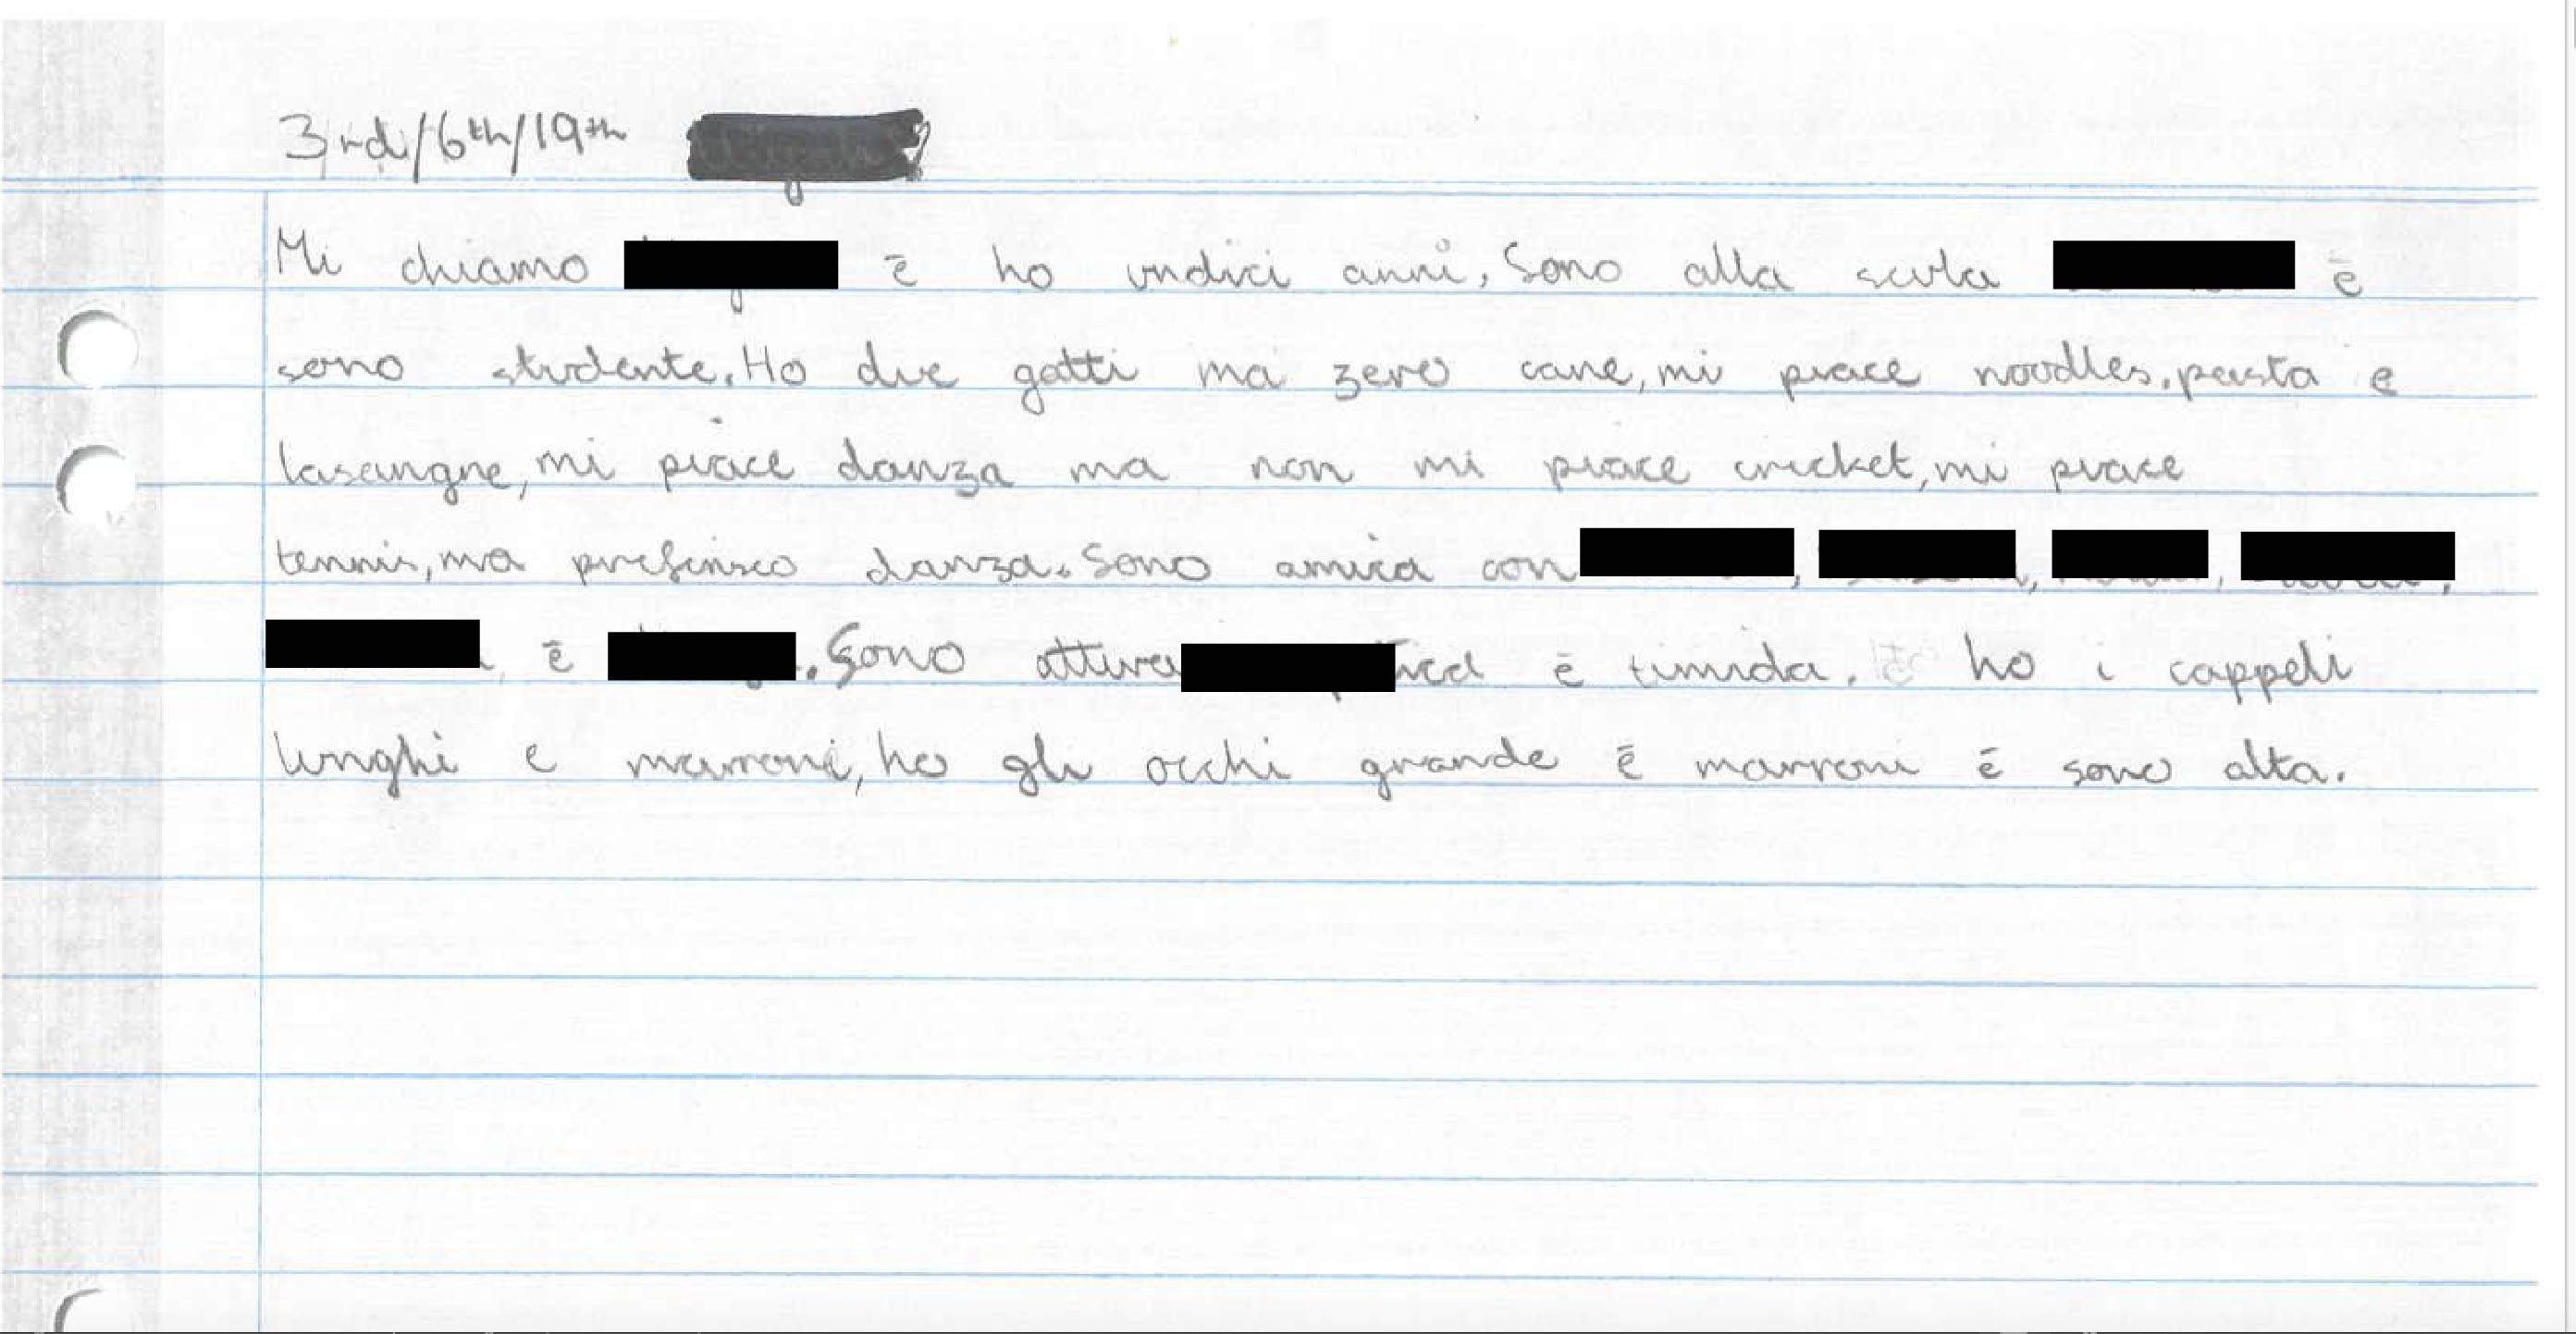 3rd/6th/19th
Mi chiamo ē ho undici anni, Sono alla scula ē
sono studente. Ho due gatti ma zero cane, mi piace noodles, pasta e
lasangne, mi piace danza ma non mi piace cricket, mi piace
tennis, ma prefirisco danza. Sono amica con , , , ,
, ē . Sono attiva ē timida. ho i cappeli
lunghi e marroni, ho gli occhi grande ē marroni ē sono alta.